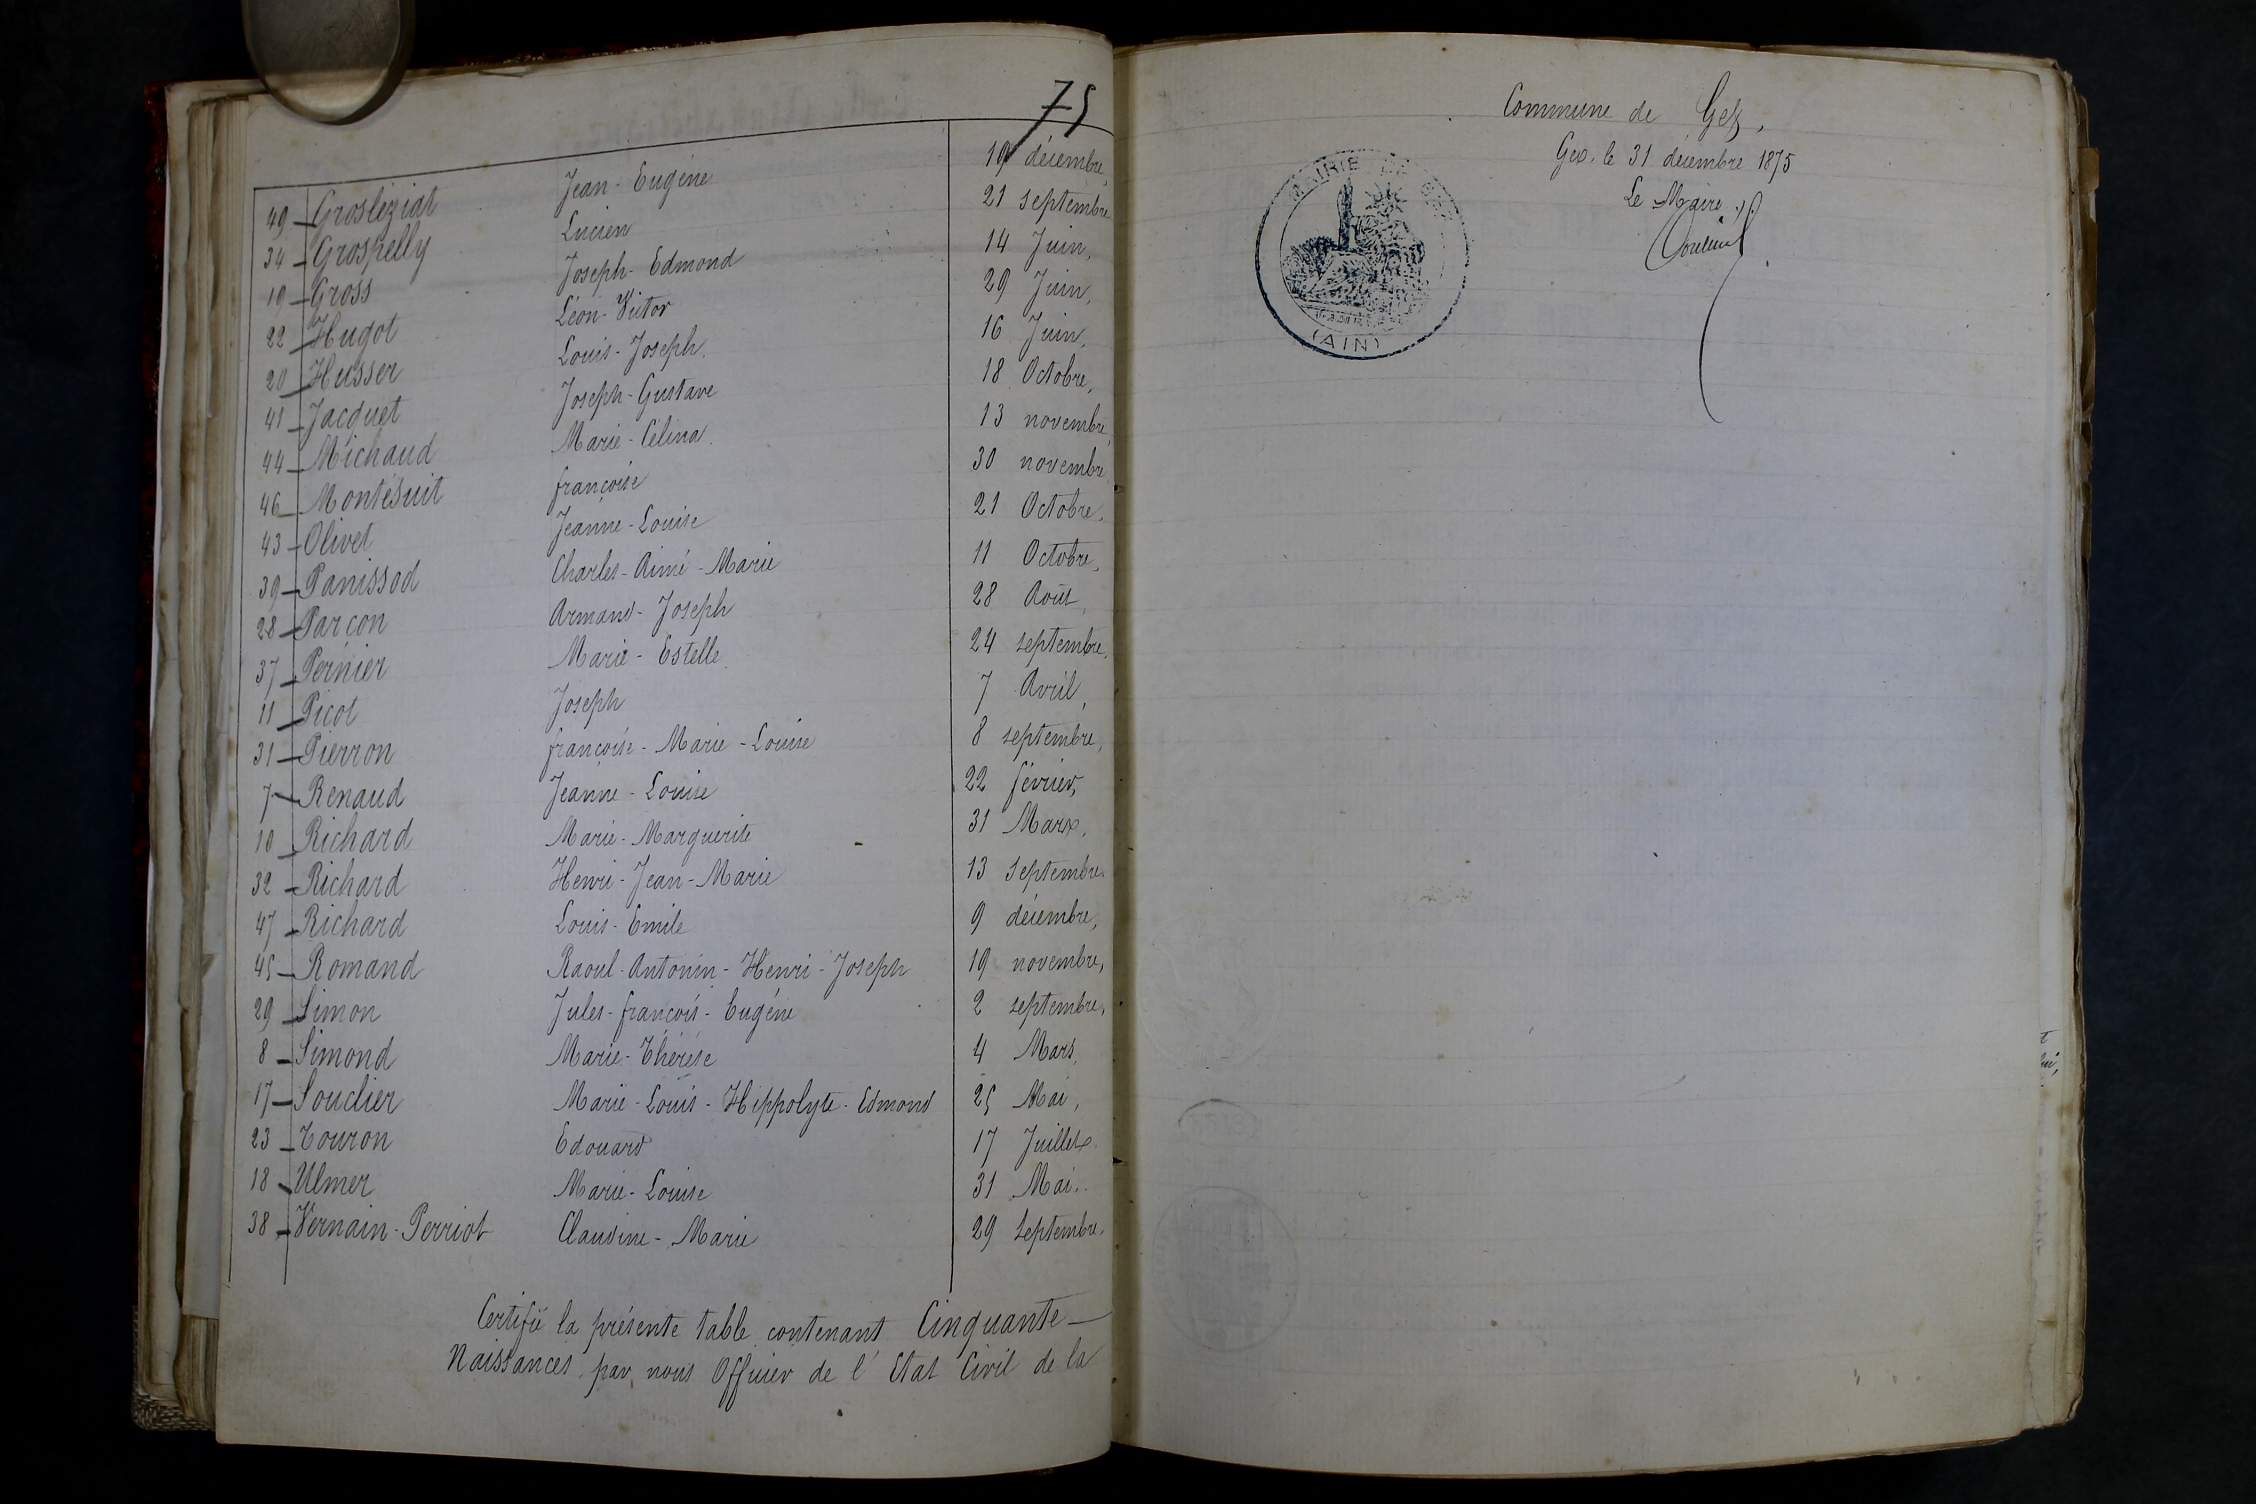 75
49 Grosléziat Jean-Eugène 19 décembre,
34 Grospelly Lucien 21 septembre
19 Gross Joseph-Edmond 14 Juin,
22 Hugot Léon-Victor 29 Juin,
20 Husser Louis-Joseph. 16 Juin,
41 Jacquet Joseph-Gustave 18 Octobre,
44 Michaud Marie-Célina. 13 novembre,
46 Montésuit françoise 30 novembre
43 Olivet Jeanne-Louise 21 Octobre,
39 Panissod Charles-Aimé-Marie 11 Octobre,
28 Parçon Armand-Joseph 28 Août,
37 Pernier Marie-Estelle. 24 septembre,
11 Picot Joseph 7 Avril,
31 Pierron françoise-Marie-Louise 8 septembre,
7 Renaud Jeanne-Louise 22 février,
10 Richard Marie-Marguerite 31 Mars,
32 Richard Henri-Jean-Marie 13 Septembre
47 Richard Louis-Emile 9 décembre,
45 Romand Raoul-Antonin-Henri-Joseph 19 novembre,
29 Simon Jules-françois-Eugène 2 septembre,
8 Simond Marie-Thérèse 4 Mars,
17 Souclier Marie-Louis-Hippolyte-Edmond 25 Mai,
23 Touron Edouard 17 Juillet
18 Ulmer Marie-Louise 31 Mai.
38 Vernain-Perriot Claudine-Marie 29 Septembre.
Certifié la présente table contenant Cinquante
Naissances par nous Officier de l'Etat Civil de la
Commune de Gex,
Gex, le 31 décembre 1875
Le Maire,
MAIRIE DE GEX
(AIN)